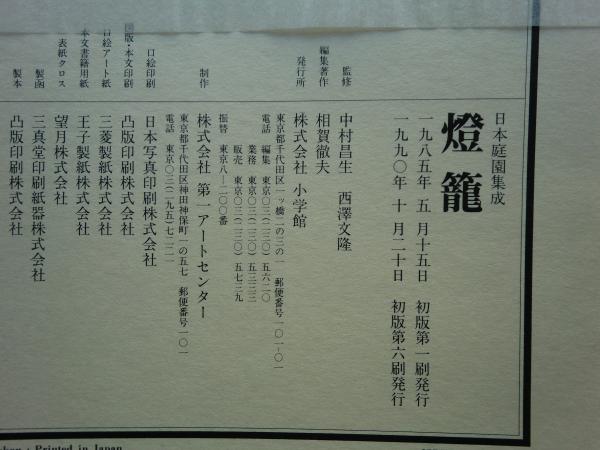 日本庭園集成
燈籠
一九八五年 五 月十五日 初版第一刷発行
一九九〇年 十 月二十日 初版第六刷発行
監修 中村昌生 西澤文隆
編集著作 相賀徹夫
発行所 株式会社 小学館
東京都千代田区一ッ橋二の三の一 郵便番号一〇一-〇一
電話 編集 東京〇三(二三〇)五六二〇
業務 東京〇三(二三〇)五三三三
販売 東京〇三(二三〇)五七三九
振替 東京八-二〇〇番
制作 株式会社 第一アートセンター
東京都千代田区神田神保町一の五七 郵便番号一〇一
電話 東京〇三(二九五)七二二一
口絵印刷 日本写真印刷株式会社
図版・本文印刷 凸版印刷株式会社
口絵アート紙 三菱製紙株式会社
本文書籍用紙 王子製紙株式会社
表紙クロス 望月株式会社
製函 三真堂印刷紙器株式会社
製本 凸版印刷株式会社
Printed in Japan